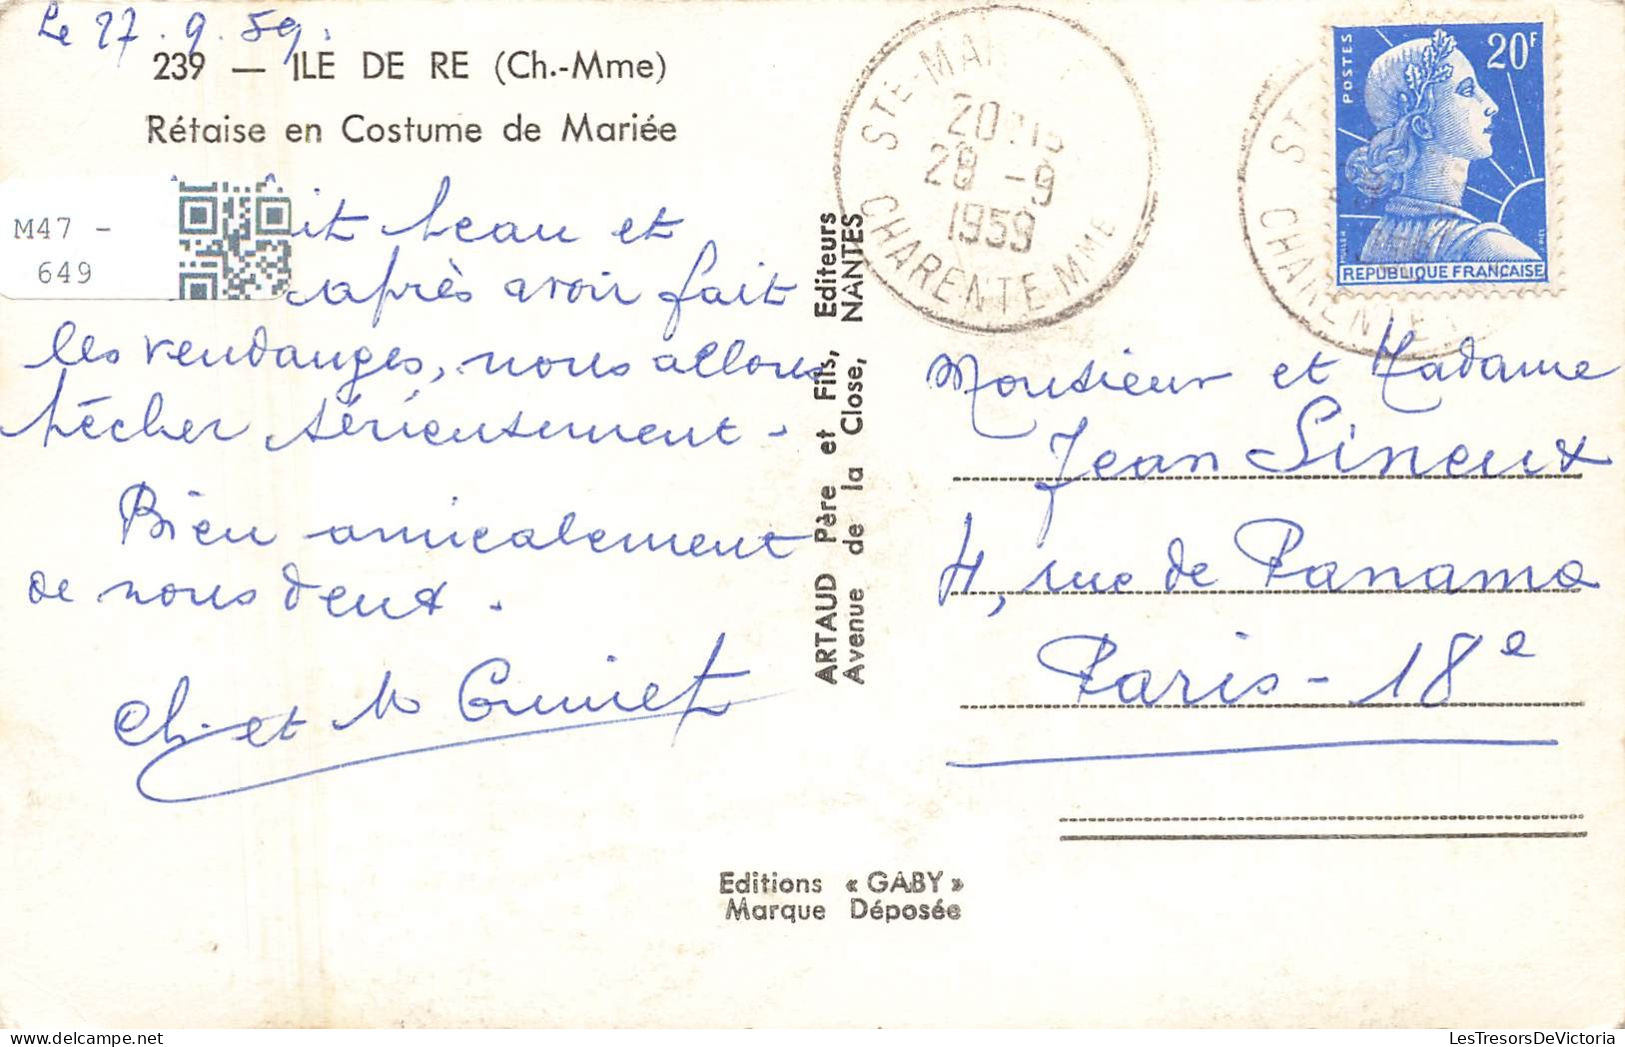 Le 27.9.59.
239 — ILE DE RE (Ch.-Mme)
Rétaise en Costume de Mariée
M47 -
649
beau et
après avoir fait
les vendanges, nous allons
pêcher sérieusement.
Bien amicalement
de nous deux.
Ch. et M
ARTAUD Père et Fils, Editeurs
Avenue de la Close, NANTES
STE-MAR
28 -9
1959
CHARENTE-MME
POSTES
20F
REPUBLIQUE FRANÇAISE
Monsieur et Madame
Jean Sineux
4, rue de Panama
Paris - 18e
Editions « GABY »
Marque Déposée
LesTresorsDeVictoria